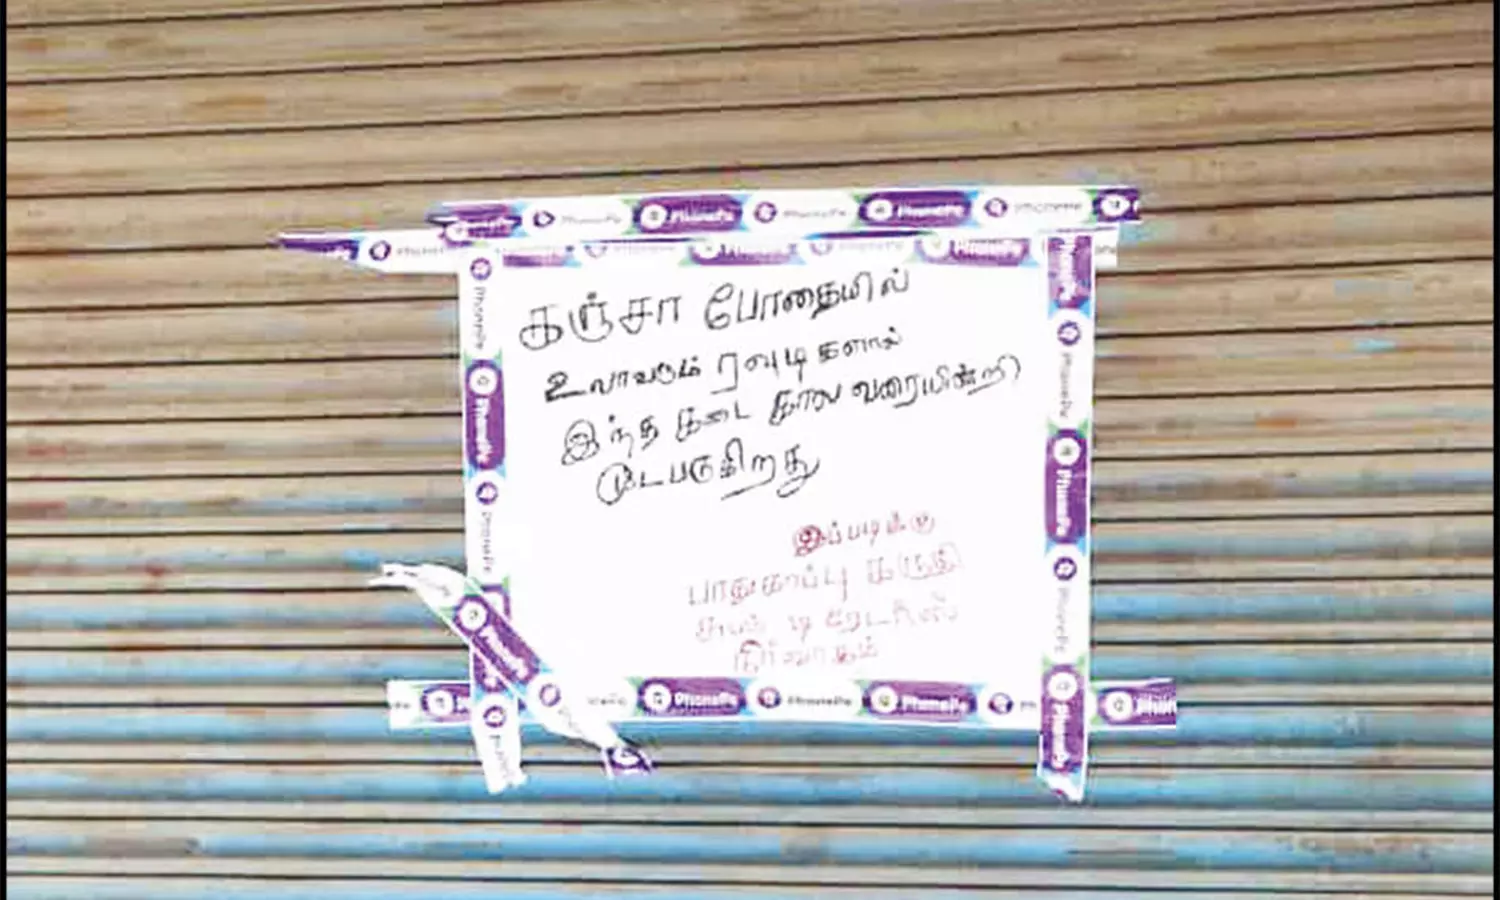 PhonePe PhonePe PhonePe PhonePe
PhonePe PhonePe PhonePe
கஞ்சா போதையில்
உலாவரும் ரவுடிகளால்
இந்த கடை கால வரையின்றி
மூடபடுகிறது
இப்படிக்கு
பாதுகாப்பு கருதி
டிரேடர்ஸ்
நிர்வாகம்
PhonePe PhonePe PhonePe